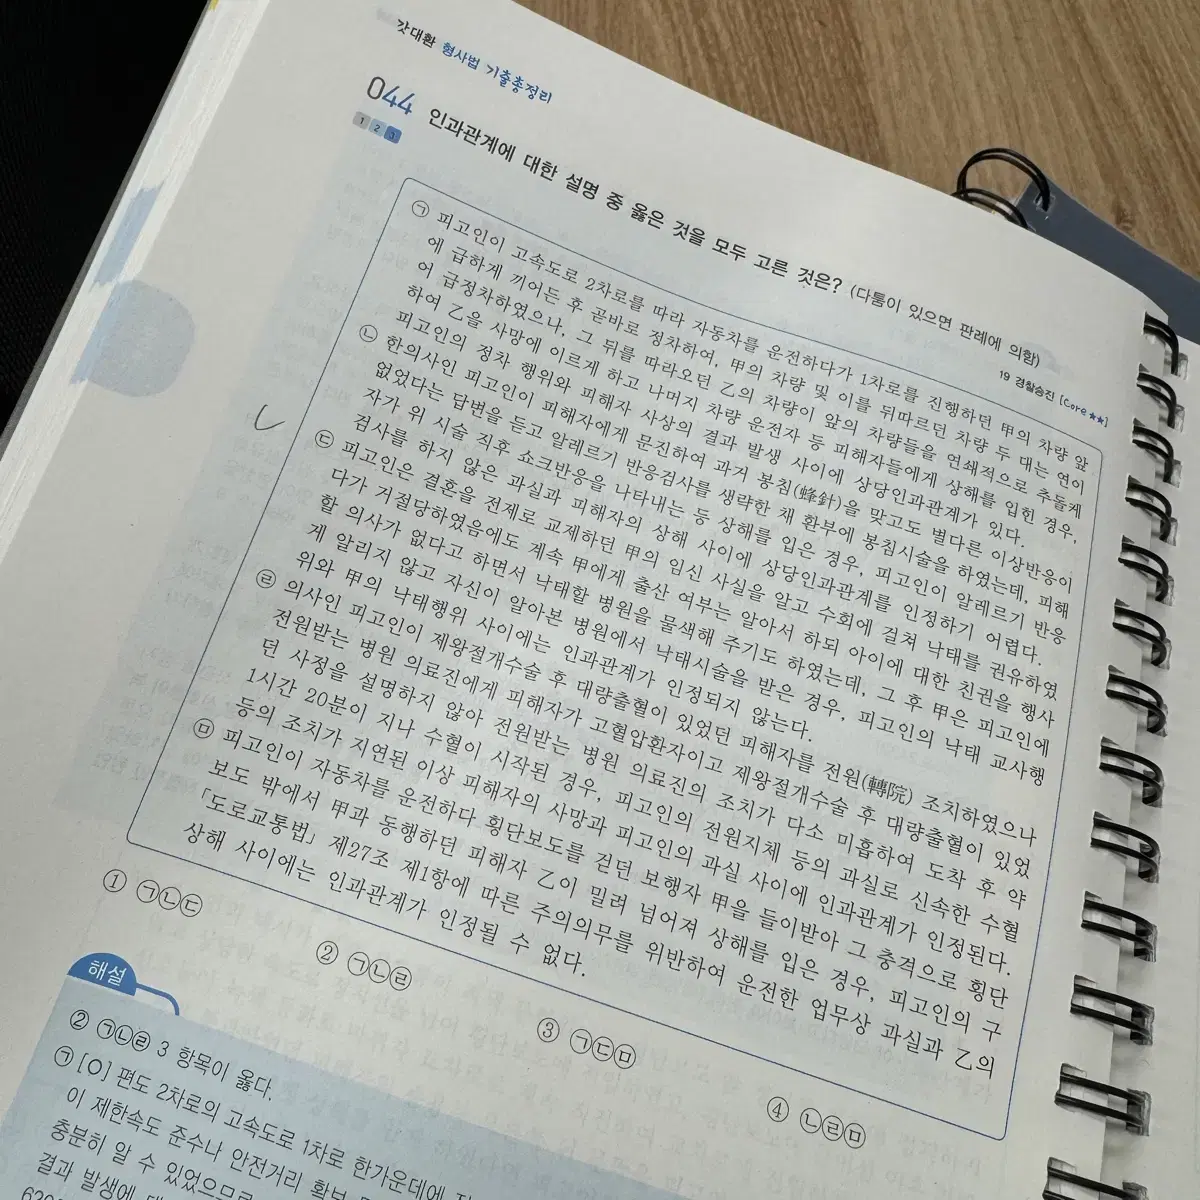 갓대환 형사법 기출총정리
044 인과관계에 대한 설명 중 옳은 것을 모두 고른 것은? (다툼이 있으면 판례에 의함)
1 2 3
19 경찰승진 [Core★★]
㉠ 피고인이 고속도로 2차로를 따라 자동차를 운전하다가 1차로를 진행하던 甲의 차량 앞
에 급하게 끼어든 후 곧바로 정차하여, 甲의 차량 및 이를 뒤따르던 차량 두 대는 연이
어 급정차하였으나, 그 뒤를 따라오던 乙의 차량이 앞의 차량들을 연쇄적으로 추돌케
하여 乙을 사망에 이르게 하고 나머지 차량 운전자 등 피해자들에게 상해를 입힌 경우,
피고인의 정차 행위와 피해자 사상의 결과 발생 사이에 상당인과관계가 있다.
㉡ 한의사인 피고인이 피해자에게 문진하여 과거 봉침(蜂針)을 맞고도 별다른 이상반응이
없었다는 답변을 듣고 알레르기 반응검사를 생략한 채 환부에 봉침시술을 하였는데, 피해
자가 위 시술 직후 쇼크반응을 나타내는 등 상해를 입은 경우, 피고인이 알레르기 반응
검사를 하지 않은 과실과 피해자의 상해 사이에 상당인과관계를 인정하기 어렵다.
㉢ 피고인은 결혼을 전제로 교제하던 甲의 임신 사실을 알고 수회에 걸쳐 낙태를 권유하였
다가 거절당하였음에도 계속 甲에게 출산 여부는 알아서 하되 아이에 대한 친권을 행사
할 의사가 없다고 하면서 낙태할 병원을 물색해 주기도 하였는데, 그 후 甲은 피고인에
게 알리지 않고 자신이 알아본 병원에서 낙태시술을 받은 경우, 피고인의 낙태 교사행
위와 甲의 낙태행위 사이에는 인과관계가 인정되지 않는다.
㉣ 의사인 피고인이 제왕절개수술 후 대량출혈이 있었던 피해자를 전원(轉院) 조치하였으나
전원받는 병원 의료진에게 피해자가 고혈압환자이고 제왕절개수술 후 대량출혈이 있었
던 사정을 설명하지 않아 전원받는 병원 의료진의 조치가 다소 미흡하여 도착 후 약
1시간 20분이 지나 수혈이 시작된 경우, 피고인의 전원지체 등의 과실로 신속한 수혈
등의 조치가 지연된 이상 피해자의 사망과 피고인의 과실 사이에 인과관계가 인정된다.
㉤ 피고인이 자동차를 운전하다 횡단보도를 걷던 보행자 甲을 들이받아 그 충격으로 횡단
보도 밖에서 甲과 동행하던 피해자 乙이 밀려 넘어져 상해를 입은 경우, 피고인의 구
「도로교통법」 제27조 제1항에 따른 주의의무를 위반하여 운전한 업무상 과실과 乙의
상해 사이에는 인과관계가 인정될 수 없다.
① ㉠㉡㉢
② ㉠㉡㉣
③ ㉠㉢㉤
④ ㉡㉣㉤
해설
② ㉠㉡㉣ 3 항목이 옳다.
㉠ [O] 편도 2차로의 고속도로 1차로 한가운데에
이 제한속도 준수나 안전거리 확보
충분히 알 수 있었으므로
결과 발생에